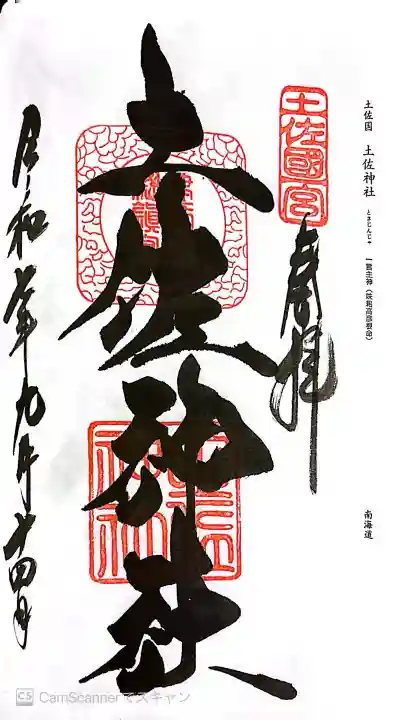 土佐国 土佐神社 とさじんじゃ 一言主神（味鋤高彦根命）
南海道
土佐國宮
奉拝
土佐神社
令和七年九月十四日
CamScannerでスキャン